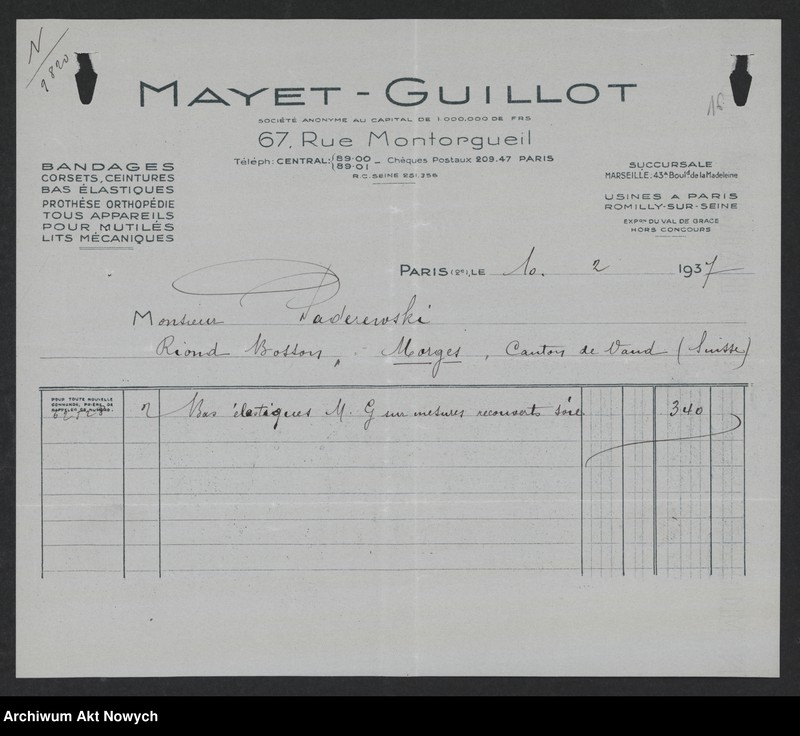 N
9820
15
MAYET - GUILLOT
SOCIÉTÉ ANONYME AU CAPITAL DE 1.000.000 DE FRS
67, Rue Montorgueil
Téléph: CENTRAL: 89-00 89-01 - Chèques Postaux 209.47 PARIS
R.C. SEINE 251.256
BANDAGES
CORSETS, CEINTURES
BAS ÉLASTIQUES
PROTHÈSE ORTHOPÉDIE
TOUS APPAREILS
POUR MUTILÉS
LITS MÉCANIQUES
SUCCURSALE
MARSEILLE: 43A Bould de la Madeleine
USINES A PARIS
ROMILLY-SUR-SEINE
EXPON DU VAL DE GRACE
HORS CONCOURS
PARIS (2e), LE 10. 2 1937
Monsieur Paderewski
Riond Bosson, Morges, Canton de Vaud (Suisse)
POUR TOUTE NOUVELLE
COMMANDE, PRIÈRE DE
RAPPELER CE NUMÉRO.
2 Bas élastiques M. G sur mesures recouverts soie 340
Archiwum Akt Nowych